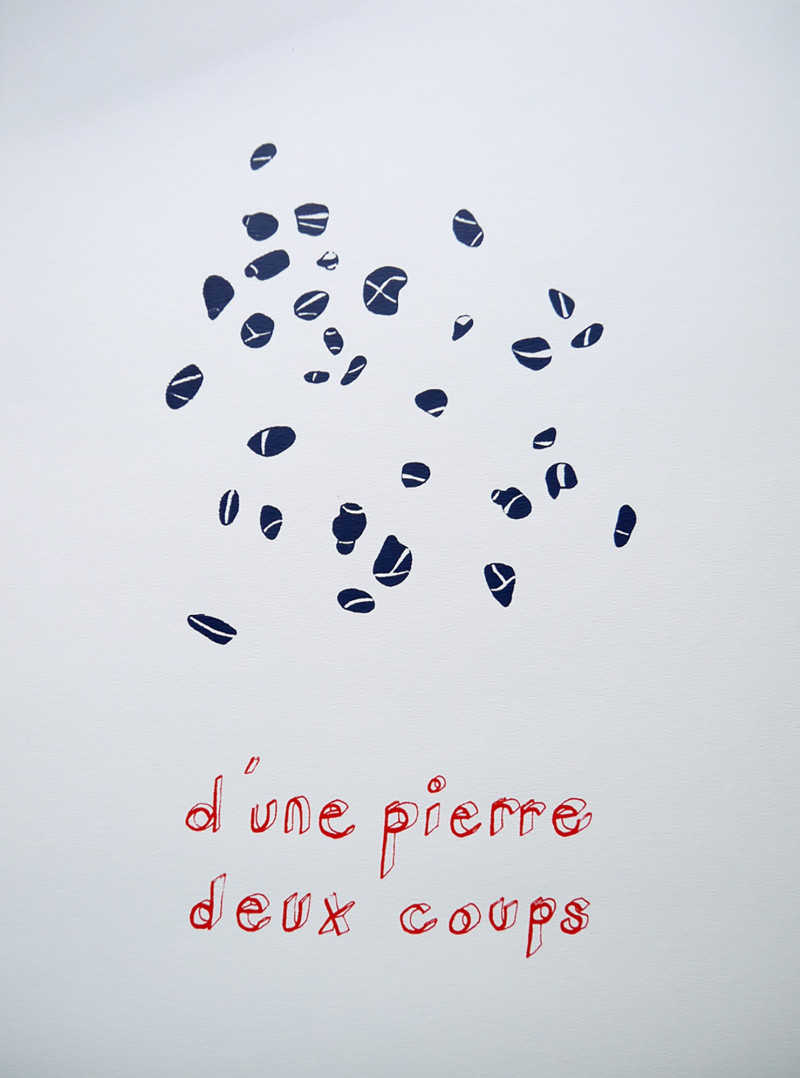 d'une pierre
deux coups